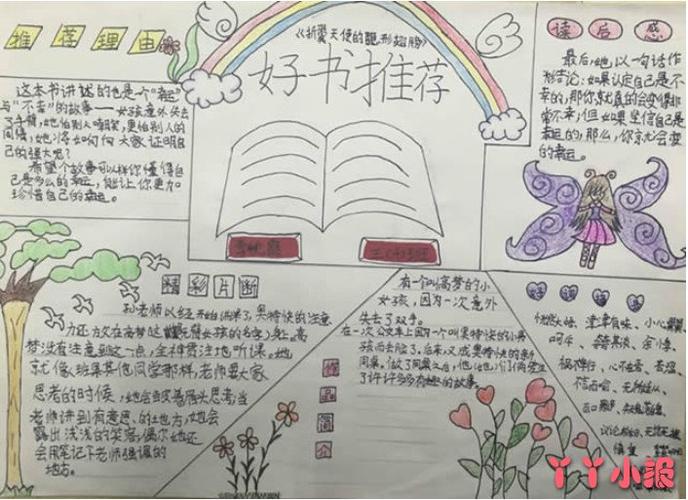 推荐理由
这本书讲述的也是一个“幸运”
与“不幸”的故事——女孩意外失去
了手臂，她怕别人嘲笑，更怕别人的
同情，她将如何向大家证明自
己的强大呢？
希望个故事可以样你懂得自
己是多么的幸运，能让你更加
珍惜自己的幸运。
《折翼天使的隐形翅膀》
好书推荐
三(十)班
读后感
最后，她，以一句话作
为结论：如果认定自己是不
幸的，那你就真的会变得非
常不幸，但如果坚信自己是
幸运的，那么，你就会变
的幸运。
精彩片断
孙老师以经开始讲课了，奥特快的注意
力还方欠在高梦(这
梦没有注意到这一点，全神贯注地听课。她
就像班里其他同学那样，老师要大家
思考的时候，她会皱着眉头思考；当
老师讲到有意思的地方，她会
露出浅浅的笑容；偶尔她还
会用笔记下老师强调的
地方。
作品简介
有一个叫高梦的小
女孩，因为一次意外
失去了双手。
在一次公交车上因为一个叫奥特快的小男
孩而丢脸了，后来，又成奥特快的新
同桌，做了同桌之后，他(她)们俩发生
了许许多多有趣的故事。
好词
津津有味、小心翼翼
心不在焉
丫丫小报